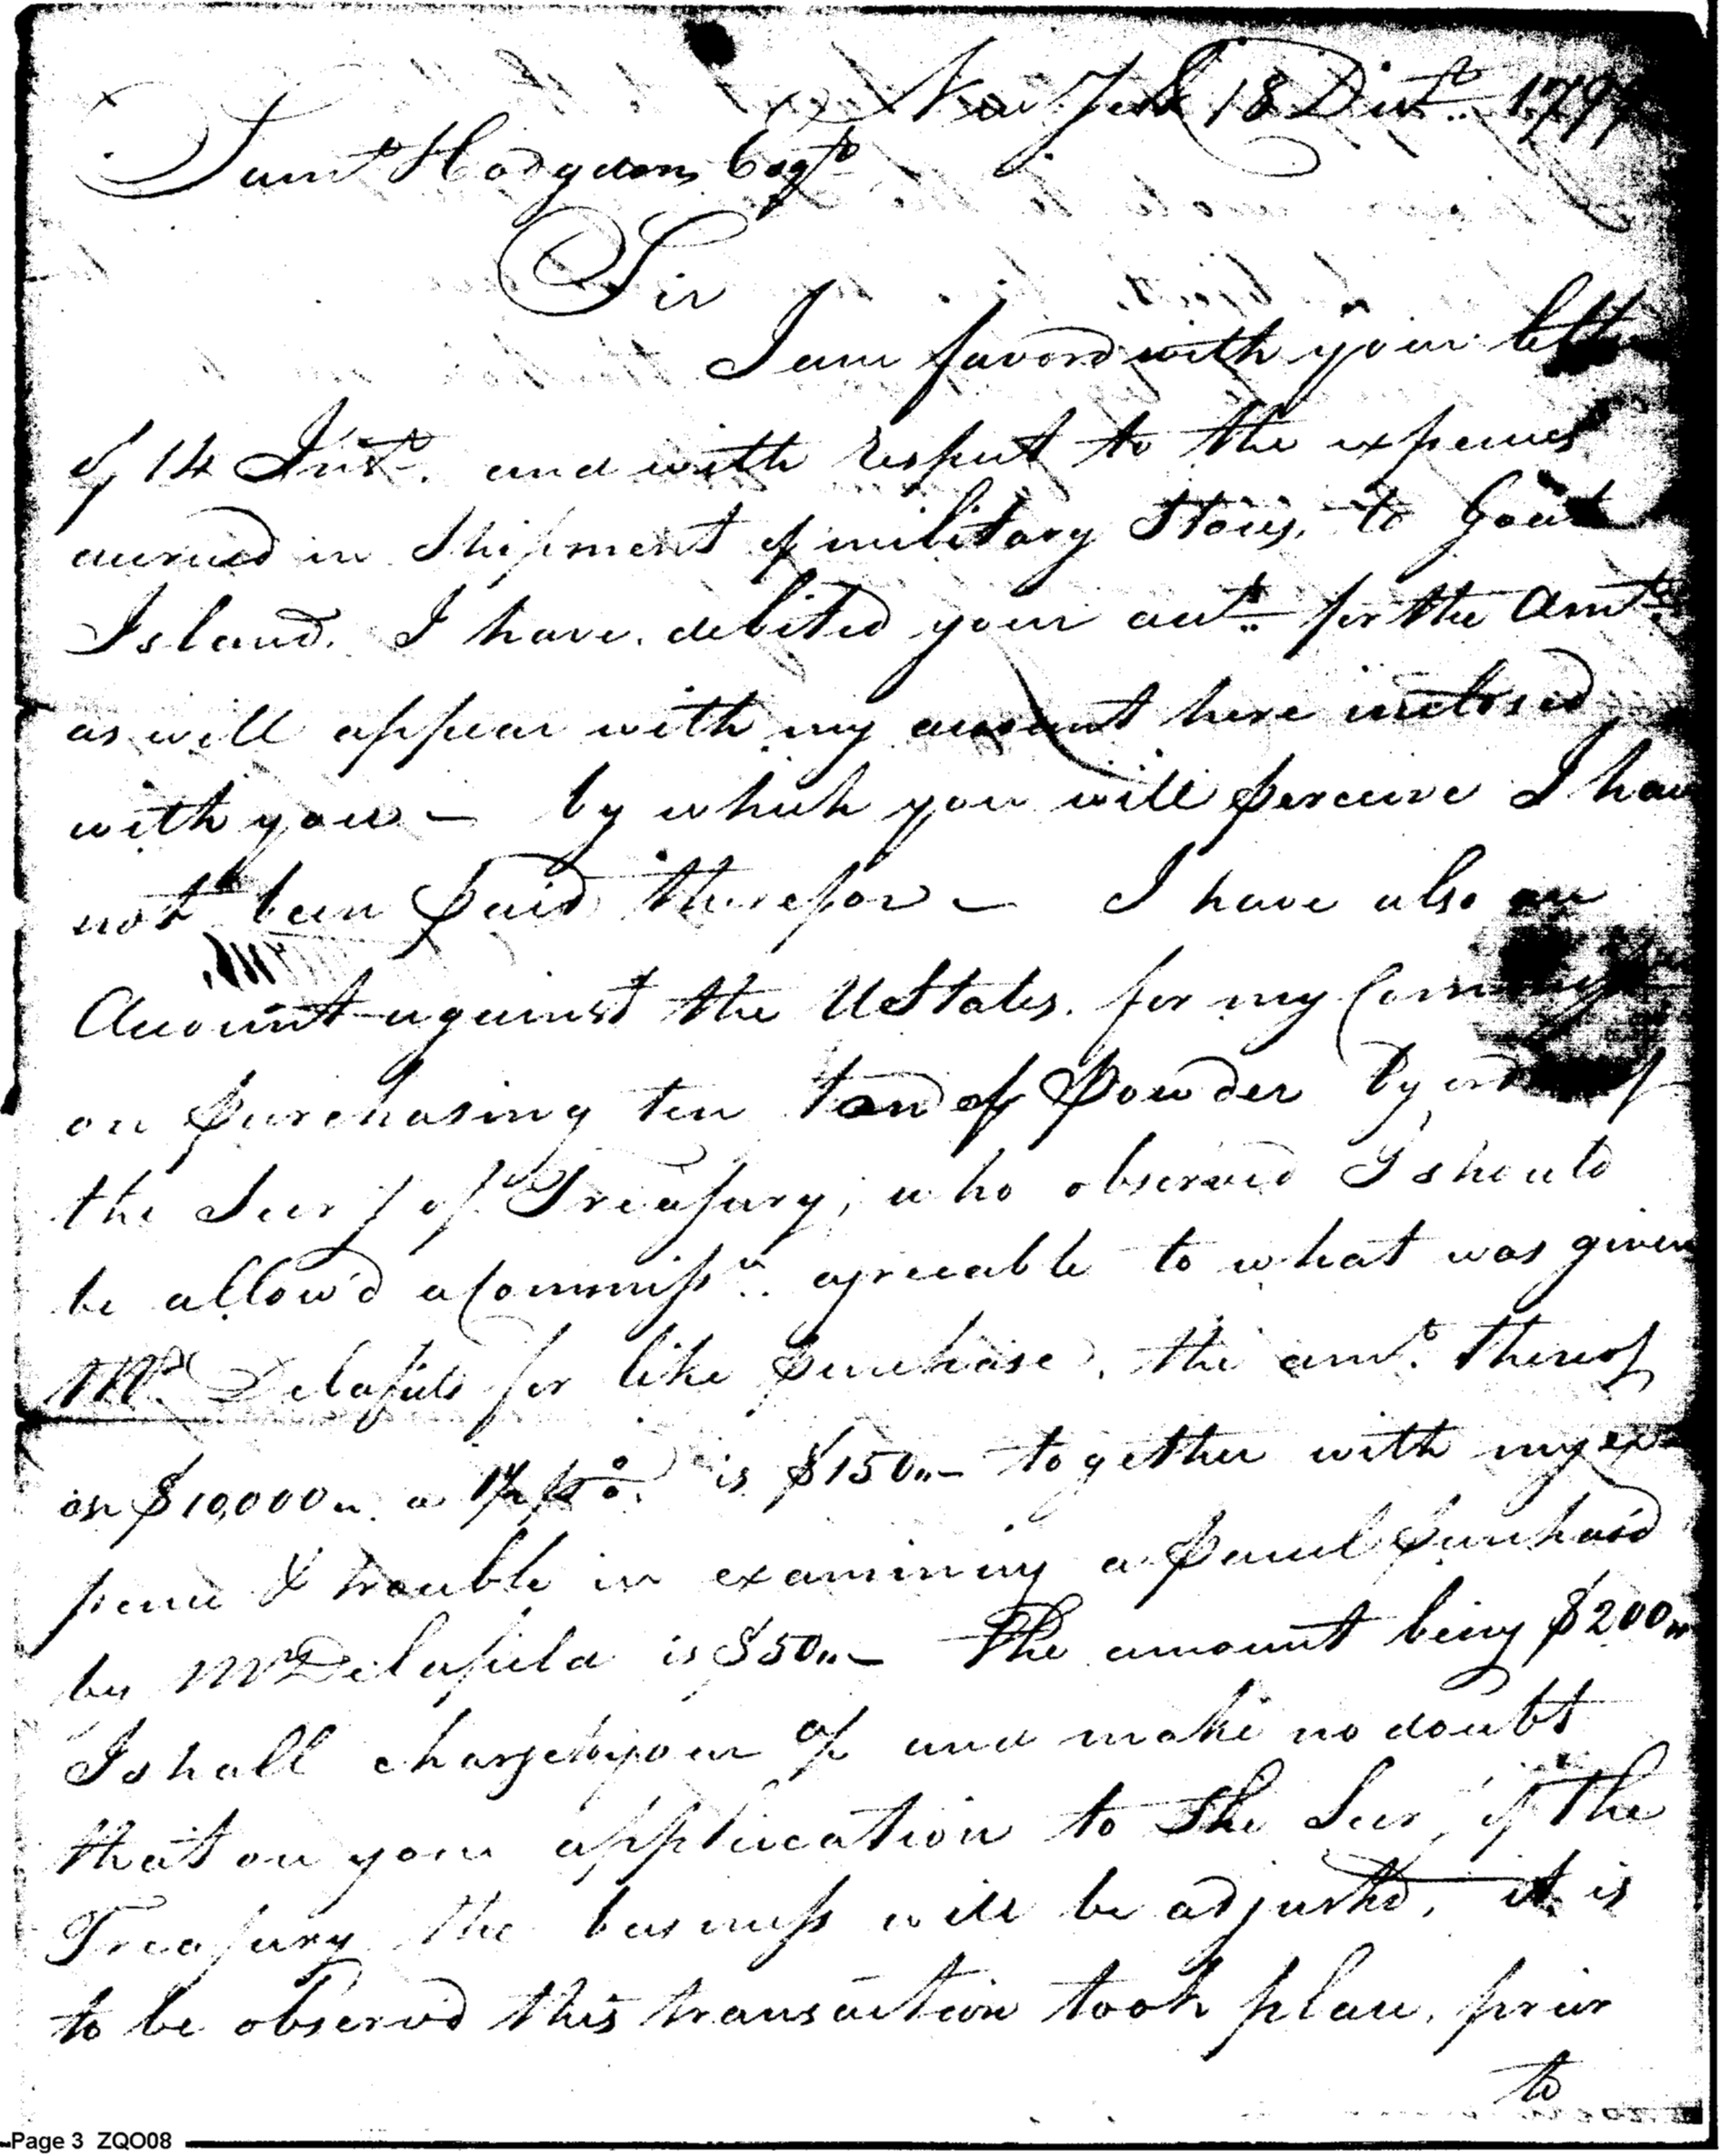 New York 18 Decr. 179
Saml Hodgdon Esqr
Sir
I am favord with your letter
of 14 Inst. and with respect to the expences
accrued in Shipment of military Stores, to Gover
Island. I have debited your acct. for the Amt.
as will appear with my account here inclosed
with you - by which you will perceive I have
not been paid therefor - I have also an
Account against the UStates. for my
on purchasing ten Ton of Powder by
the Secry of Treasury, who observed I should
be allow'd a Commissn. agreeable to what was given
Mr. Delafield for like purchase, the amt. thereof
on $10,000.. a 1½ pCo. is $150..- together with my ex-
pence & trouble in examining a parcel purchas'd
by Mr Delafield is $50..- The amount being $200..
I shall charge to your and make no doubt
that on your application to the Secy of the
Treasury the business will be adjusted, it is
to be observed this transaction took place, prior
to
Page 3 ZQO08